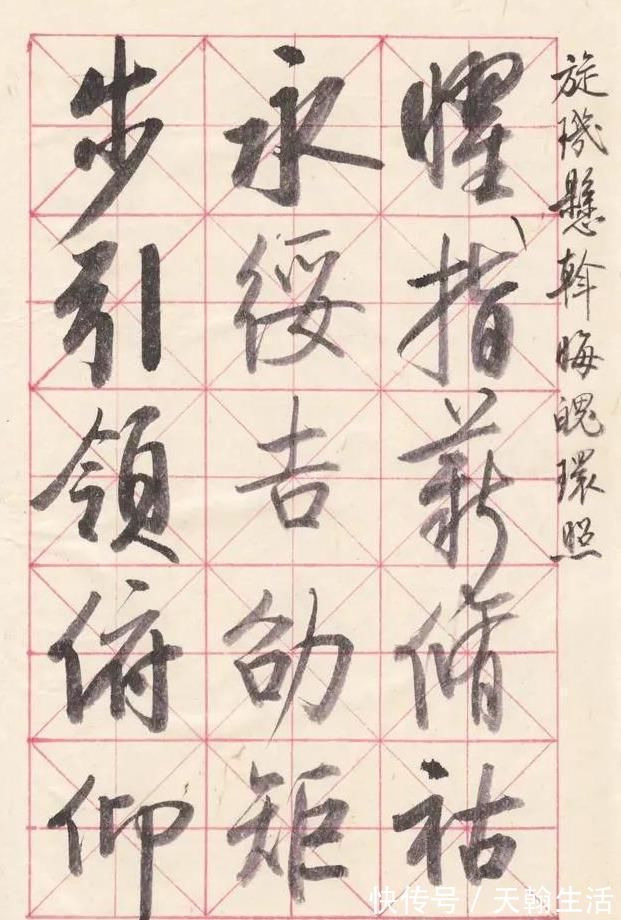 旋璣懸斡晦魄環照
耀指薪脩祜
永綏吉劭矩
步引領俯仰
快传号/天翰生活